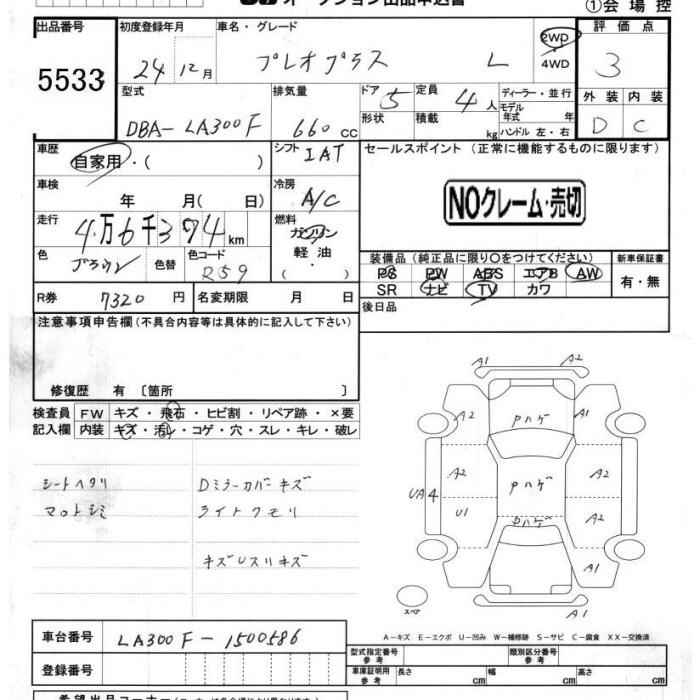 オークション出品申込書
①会場控
出品番号 初度登録年月 車名・グレード 2WD 評価点
5533 24年12月 プレオプラス L 4WD 3
型式 排気量 ドア 5 定員 4人 ディーラー・並行 外装 内装
DBA-LA300F 660cc 形状 積載 kg モデル年式 年 ハンドル 左・右 D C
車歴 自家用・( ) シフト IAT セールスポイント (正常に機能するものに限ります)
車検 年 月(日) 冷房 A/C NOクレーム・売切
走行 4万6千374km 燃料 ガソリン 軽油・( )
色 ブラウン 色替 色コード R59 装備品 (純正品に限り○をつけてください) 新車保証書
PS PW ABS エアB AW 有・無
SR ナビ TV カワ
R券 7320円 名変期限 月 日 後日品
注意事項申告欄 (不具合内容等は具体的に記入して下さい)
修復歴 有 〔箇所 〕
検査員 FW キズ・飛石・ヒビ割・リペア跡・×要
記入欄 内装 キズ・汚レ・コゲ・穴・スレ・キレ・破レ
シートヘタリ Dミラーカバーキズ
マットシミ ライトクモリ
キズUスリキズ
A1 A2
A2 Pハゲ A1
A2 Pハゲ A2
UA4 U1 Pハゲ A2
A1
スペア A1 A2
A-キズ E-エクボ U-凹み W-補修跡 S-サビ C-腐食 XX-交換済
車台番号 LA300F-1500586 型式指定番号 参考 類別区分番号 参考
登録番号 車庫証明用 参考 長さ cm 幅 cm 高さ cm
希望出品コーナー